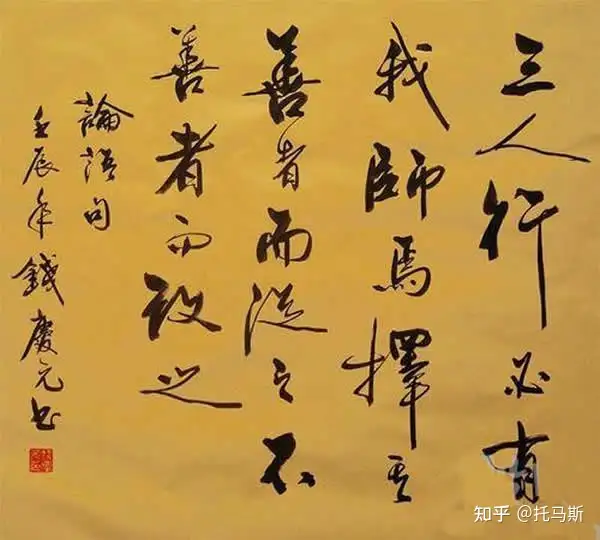 三人行必有
我師焉擇其
善者而從之不
善者而改之
論語句
壬辰年錢慶元書
知乎 @托马斯